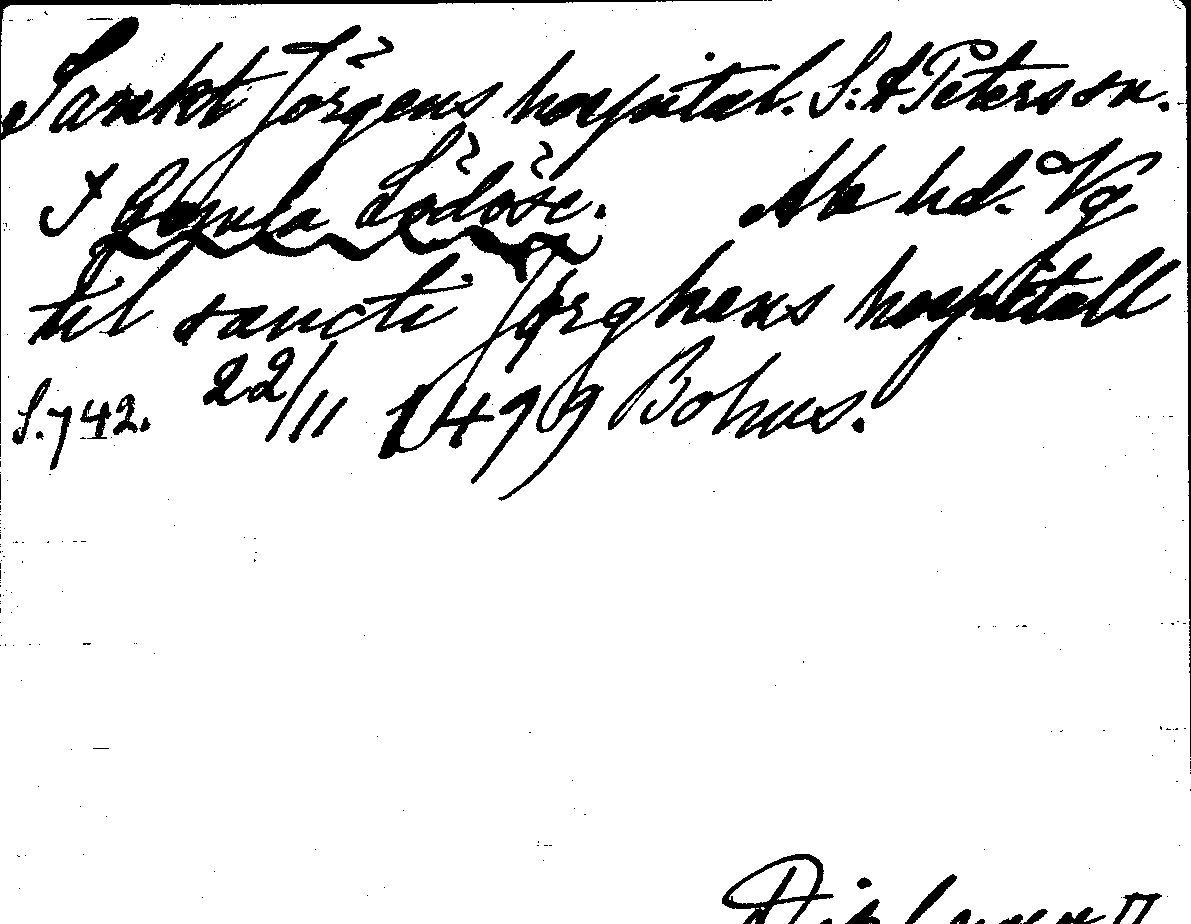 Sankt Jörgens hospital. S: A Peterson.
I Gamla Lödöse. Ale hd. Vg
til sancti Jørghens hospitall
S. 742. 22/11 1499 Bohus.